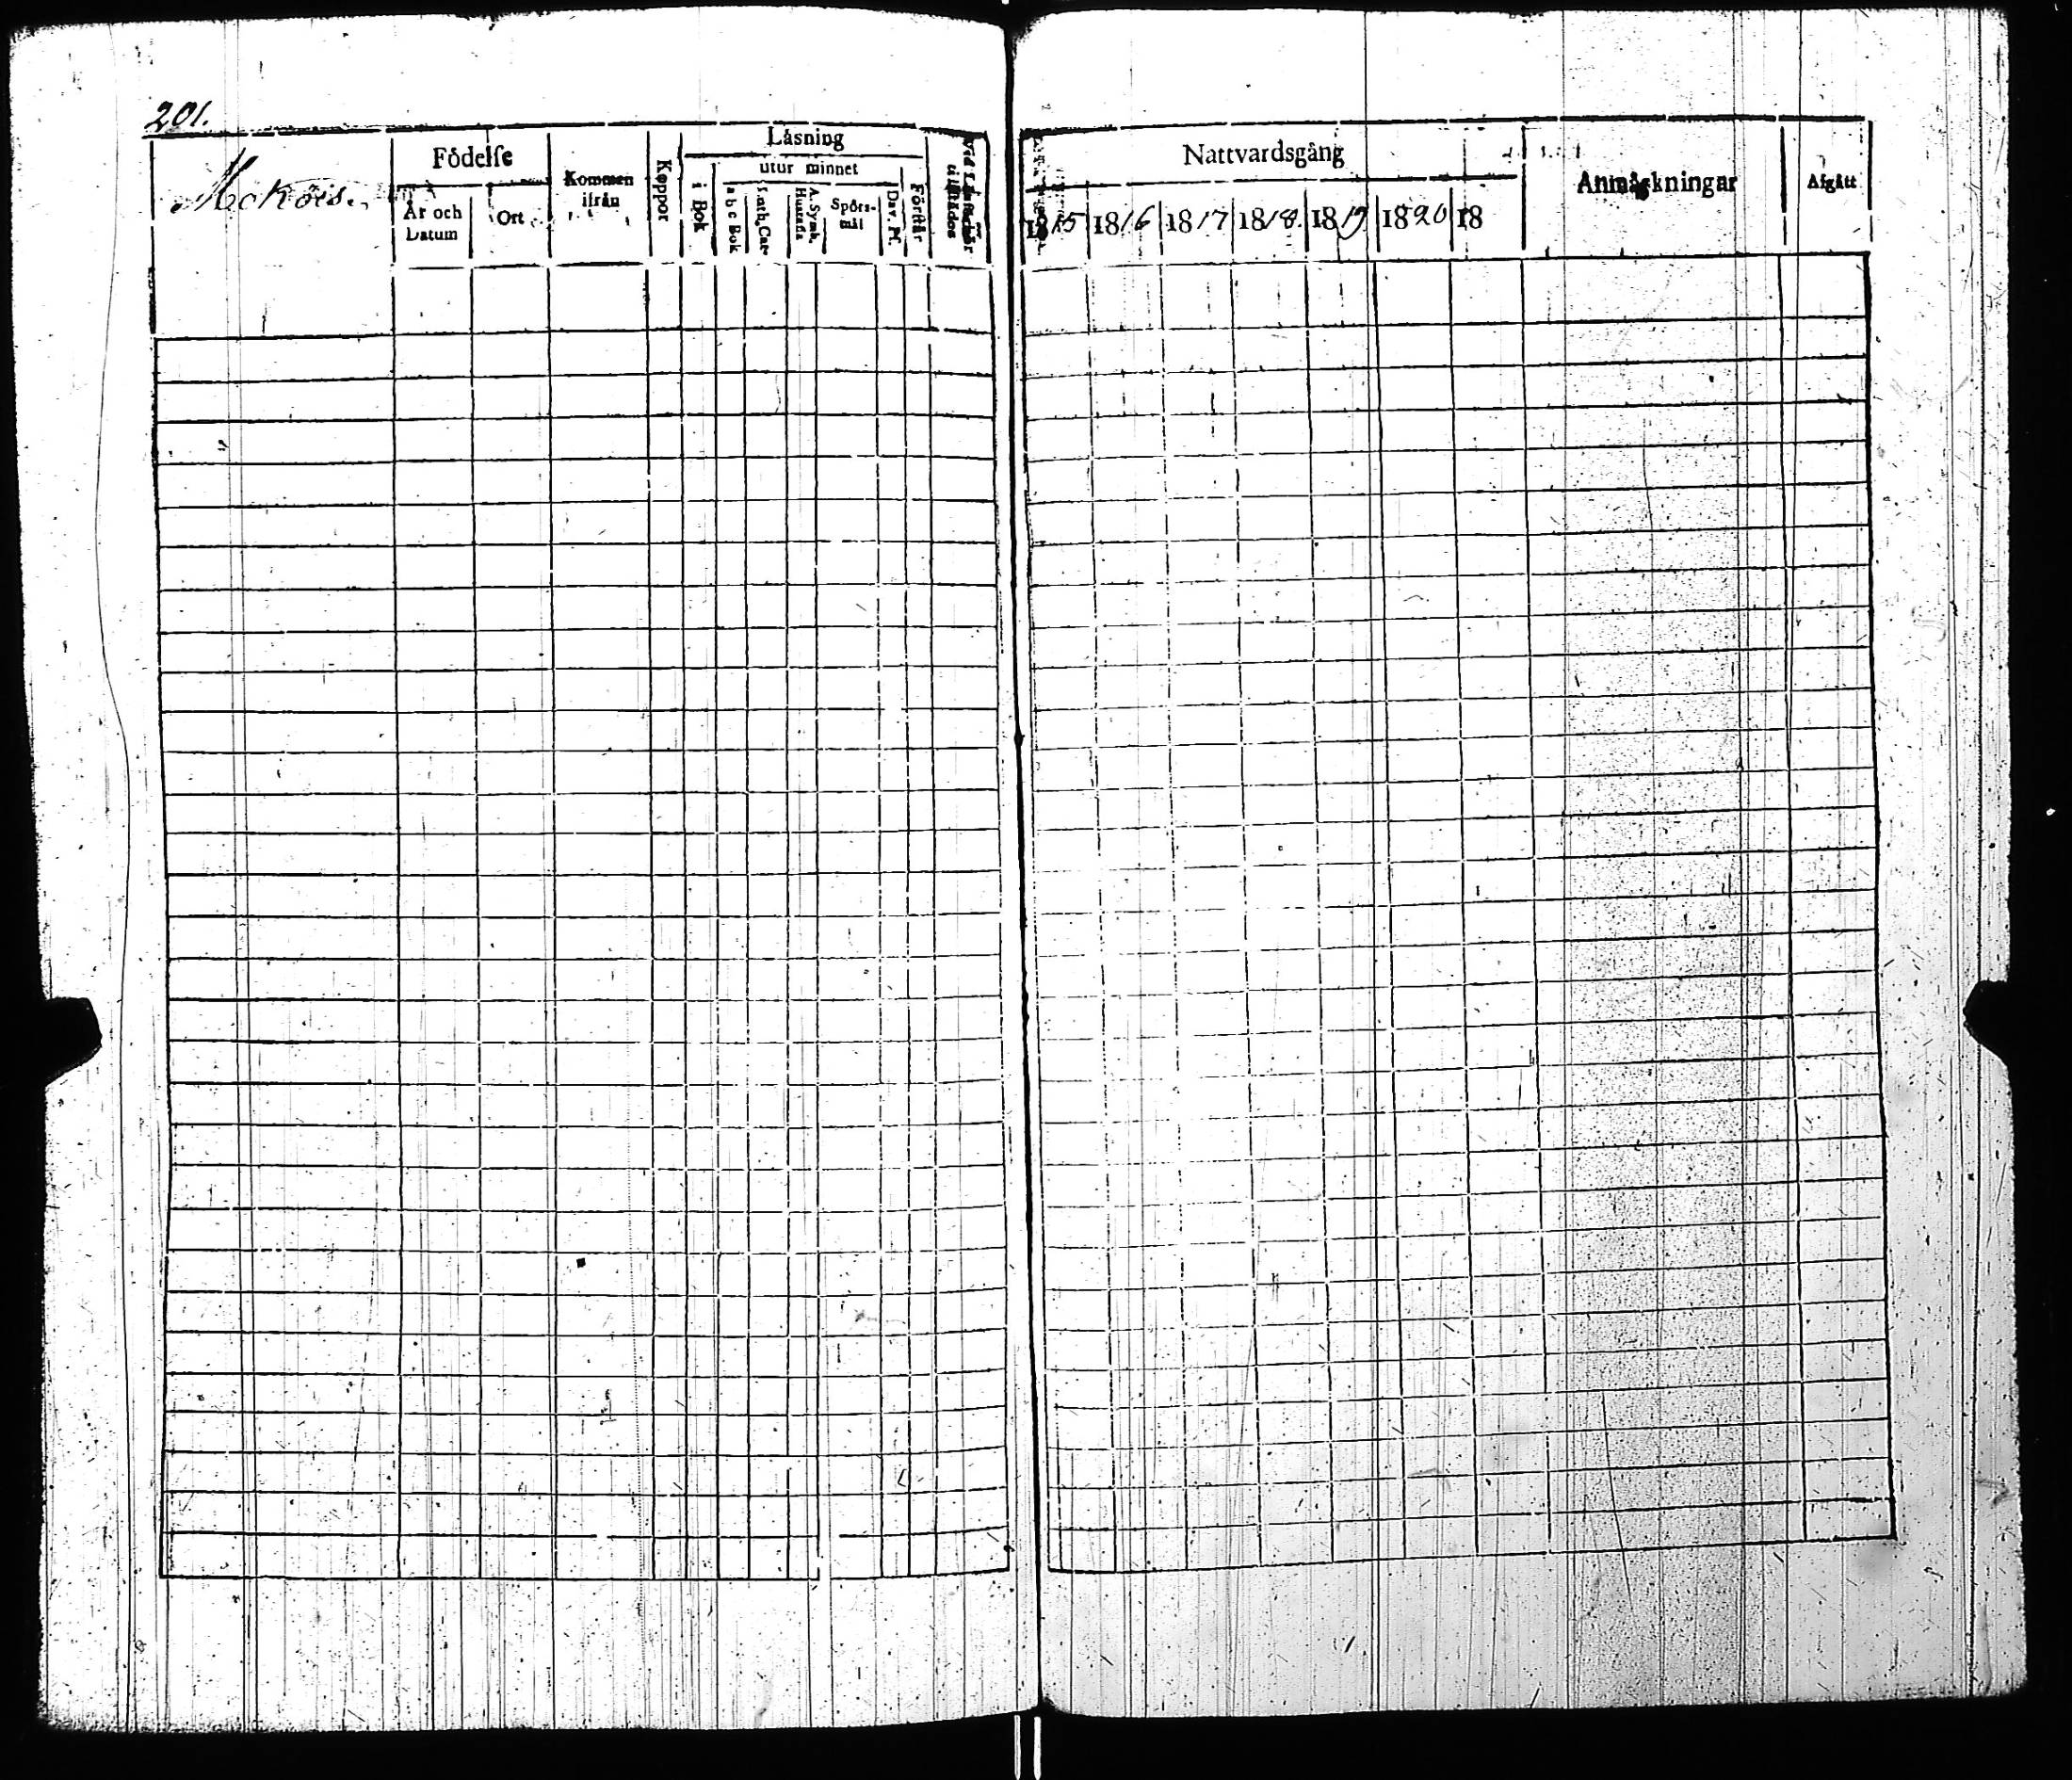 201.
Mokois.
Födelse
År och Datum
Ort
Kommen ifrån
Koppor
Läsning
i Bok
utur minnet
a b c Bok
Luth. Cat.
A. Symb. Hustafla
Spörs-mål
Dav. Ps.
Förstår
Nattvardsgång
1815 1816 1817 1818. 1819 1820 18
Anmärkningar
Afgått